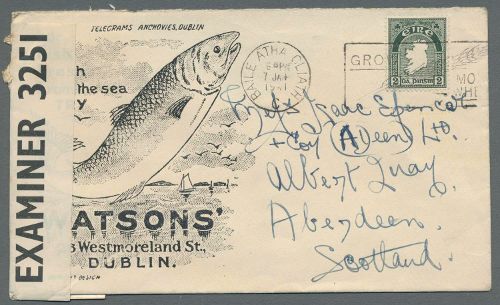 EXAMINER 3251
TELEGRAMS ANCHOVIES, DUBLIN
the sea
ATSONS'
Westmoreland St.,
DUBLIN.
BAILE ÁTHA CLIATH
7 JAN
GRO
MO
ÉIRE
2
2
Messrs Isaac Spencer
& Coy (Aberdeen) Ltd.
Albert Quay
Aberdeen.
Scotland.